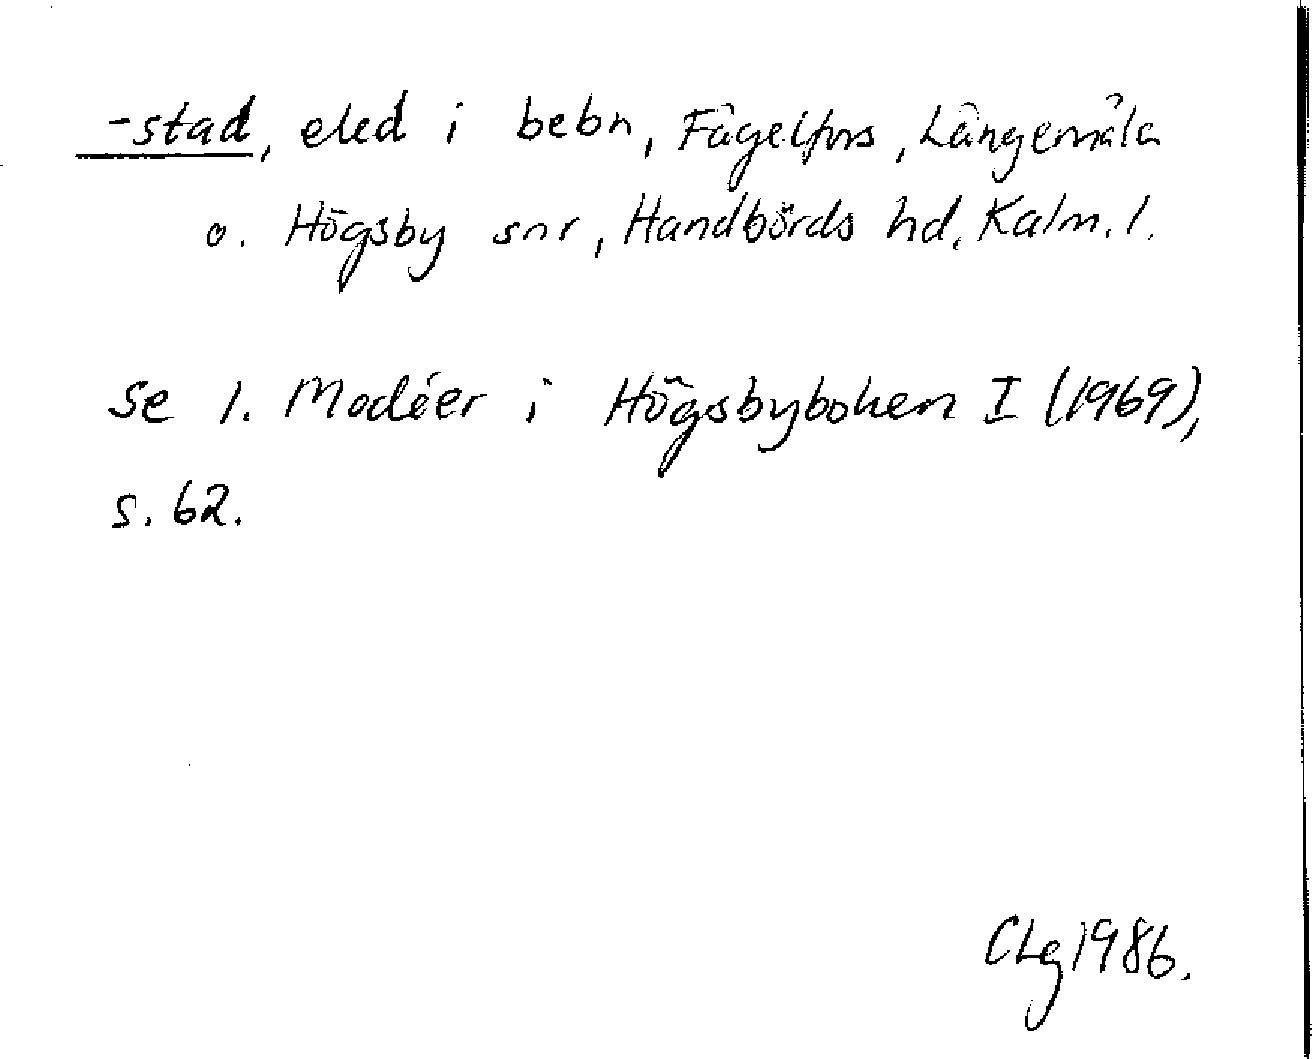 -stad, eled i bebn, Fågelfors, Långemåla
o. Högsby snr, Handbörds hd, Kalm. l.
se I. Modéer i Högsbyboken I (1969),
s. 62.
CLg 1986.